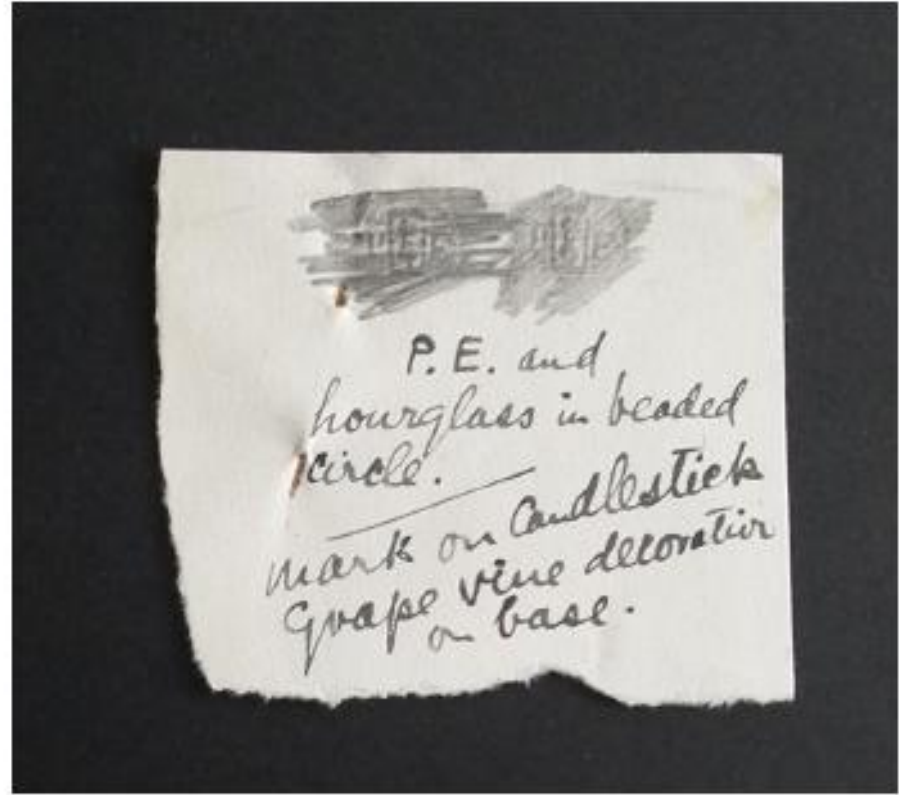 P.E. and
hourglass in beaded
circle.
mark on Candlestick
Grape vine decoration
on base.